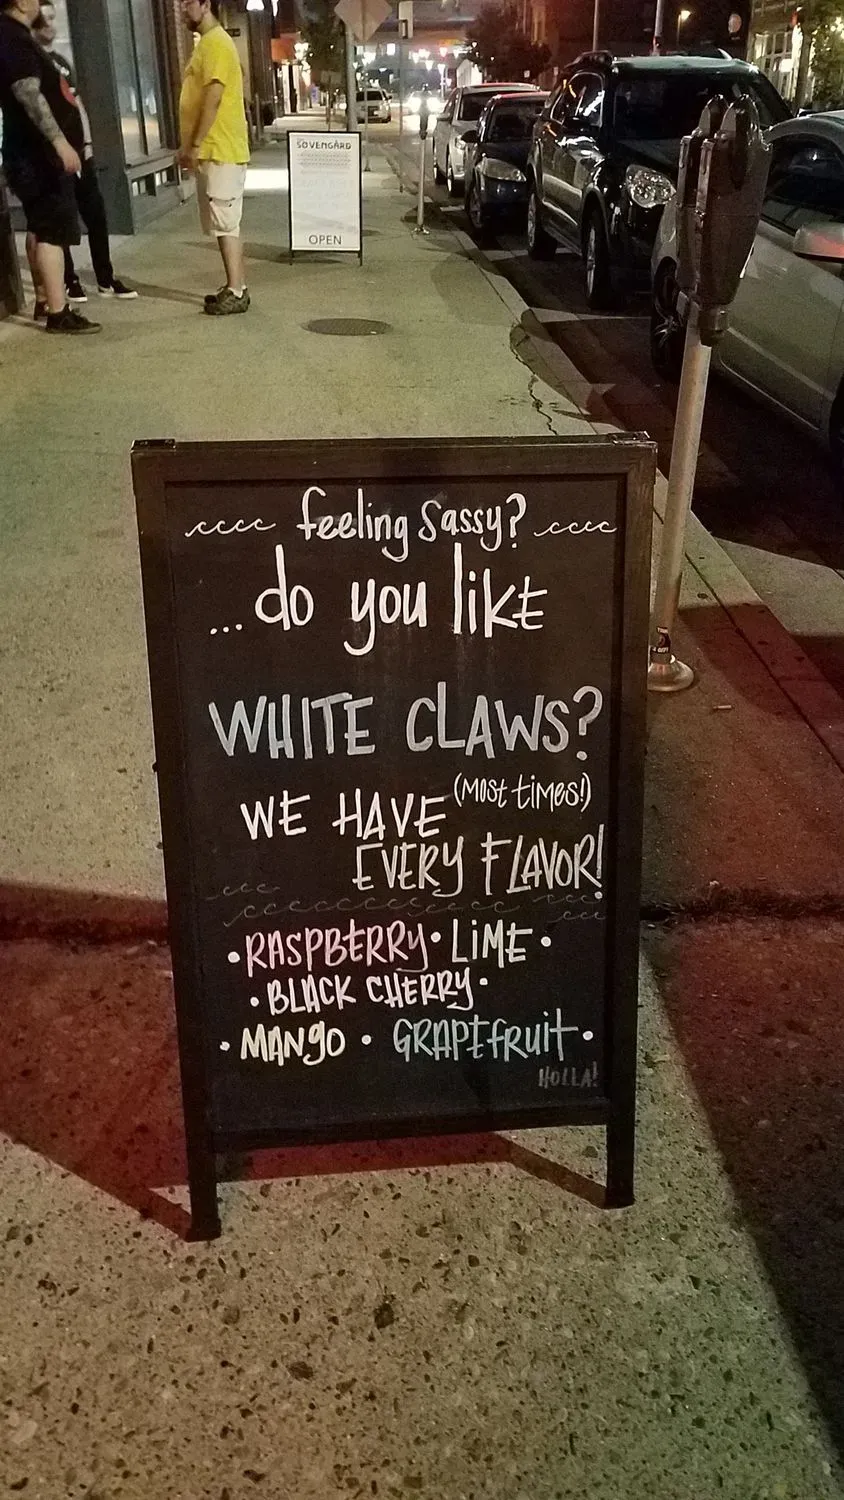 SØVENGÅRD
OPEN
feeling Sassy?
...do you like
WHITE CLAWS?
(MOST TIMES!)
WE HAVE
EVERY FLAVOR!
• RASPBERRY • LIME •
• BLACK CHERRY •
• MANGO • GRAPEFRUIT •
HOLLA!